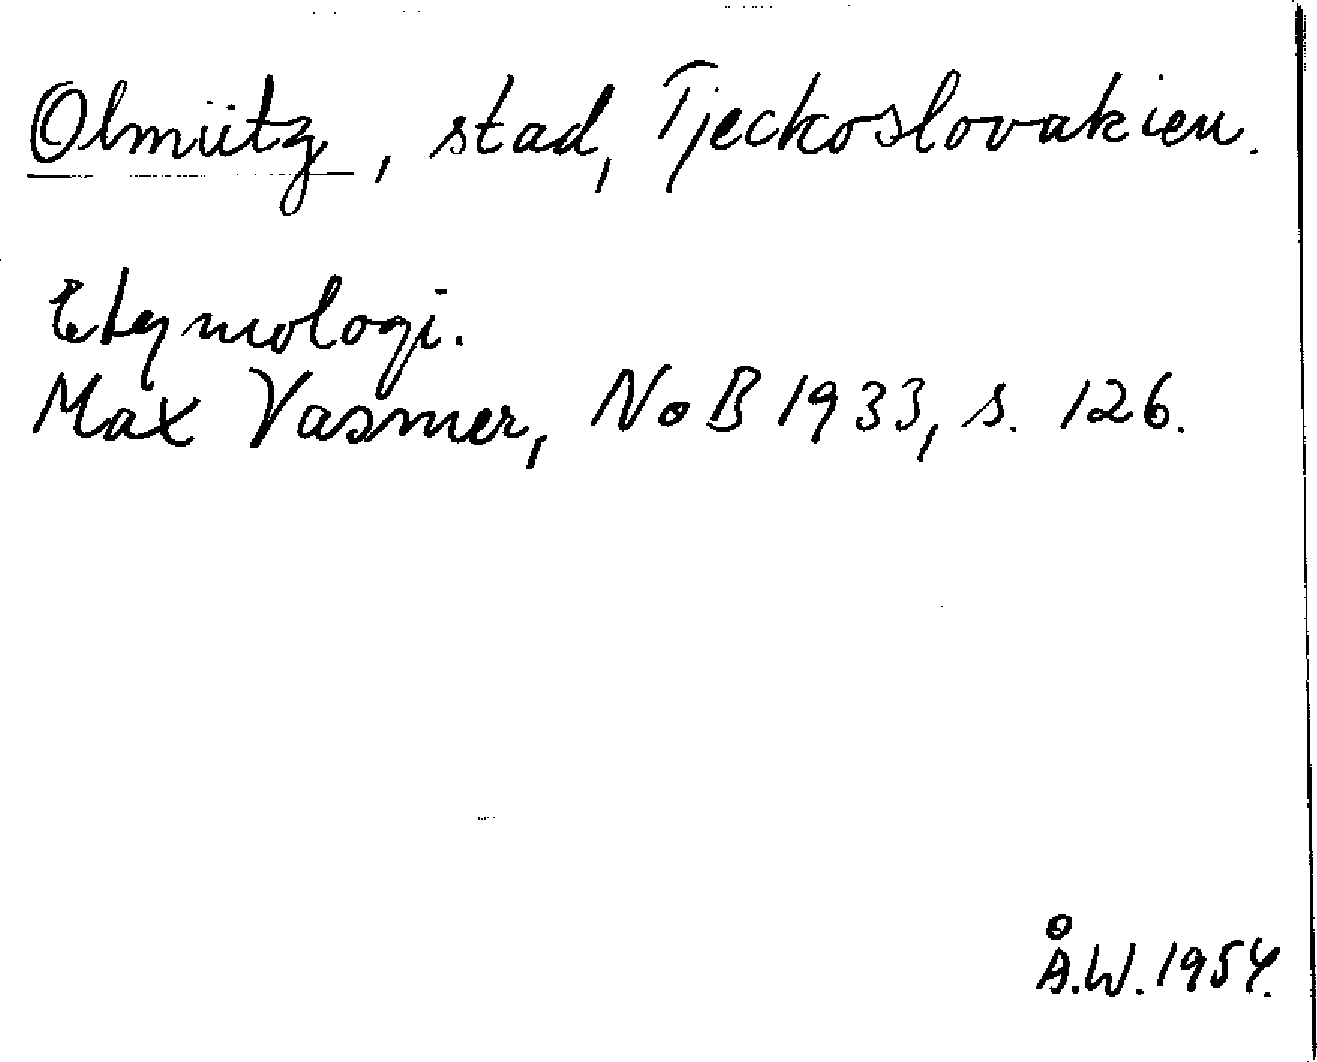 Olmütz, stad, Tjeckoslovakien.
Etymologi.
Max Vasmer, NoB 1933, s. 126.
Å.W. 1954.